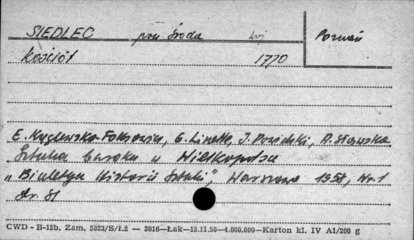 SIEDLEC pow. Środa woj Poznań
Kościół 1770
E. Kręglewska-Foksowicz, E. Linette, J. Powidzki, A. Sławska
Sztuka baroku w Wielkopolsce
„Biuletyn Historii Sztuki", Warszawa 1958, Nr. 1
str. 81
CWD - B-15b. Zam. 5323/S/Łż - 3016-Łak-15.11.56-4.000.000-Karton kl. IV A1/200 g